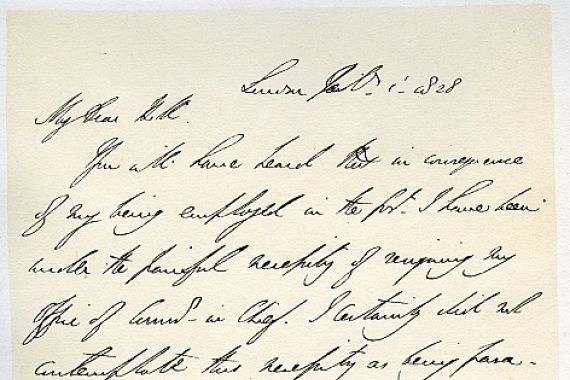 London Feb. 1. 1828
My Dear Hill.
You will have heard that in consequence
of my being employed in the Govt. I have been
under the painful necessity of resigning my
Office of Commr. in Chief. I certainly did not
contemplate this necessity as being para-